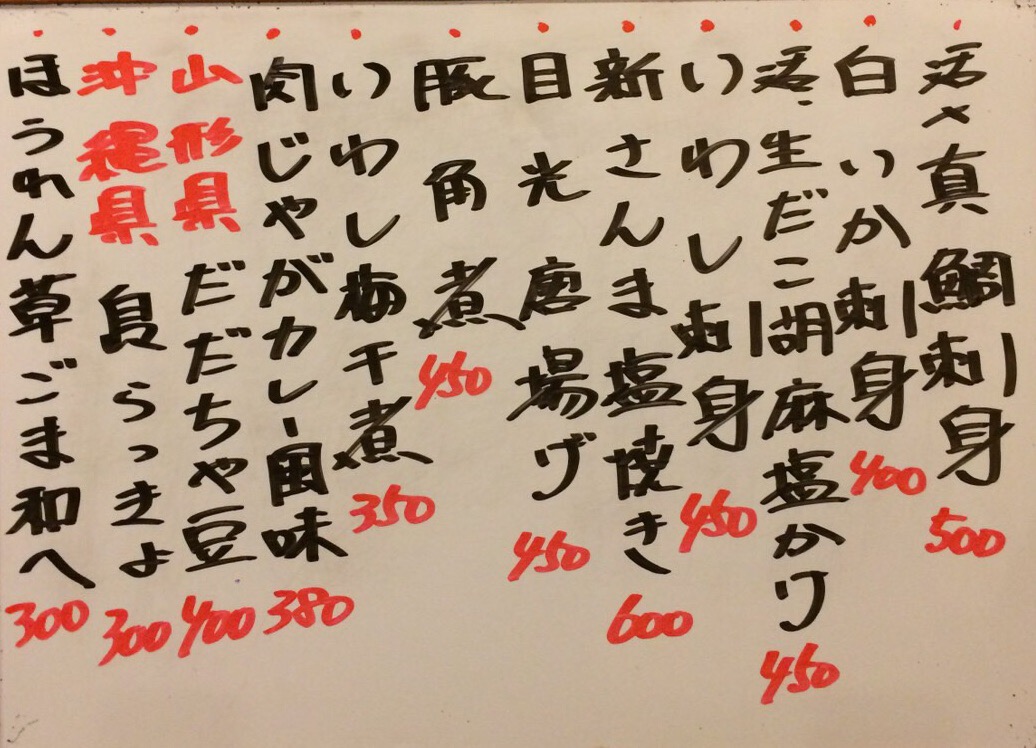 活〆真鯛刺身 500
白いか刺身 400
活、生だこ胡麻塩かけ 450
いわし刺身 450
新さんま塩焼き 600
目光唐揚げ 450
豚角煮 450
いわし梅干煮 350
肉じゃがカレー風味 380
山形県 だだちゃ豆 400
沖縄県 島らっきょ 300
ほうれん草ごま和へ 300